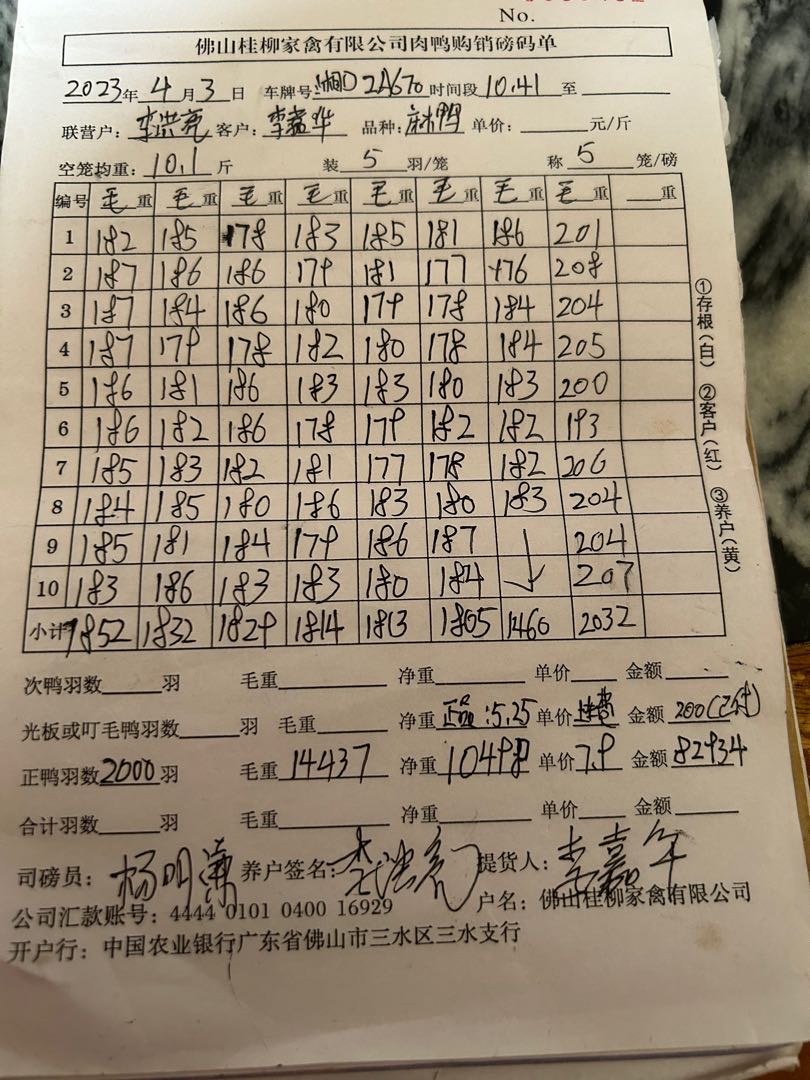 No.
佛山桂柳家禽有限公司肉鸭购销磅码单
2023年 4 月 3 日 车牌号 湘D2A670 时间段 10.41 至
联营户: 李洪亮 客户: 李嘉华 品种: 麻鸭 单价: 元/斤
空笼均重: 10.1 斤 装 5 羽/笼 称 5 笼/磅
编号 毛重 毛重 毛重 毛重 毛重 毛重 毛重 毛重 重
1 182 185 178 183 185 181 186 201
2 187 186 186 179 181 177 176 208
3 187 184 186 180 179 178 184 204
4 187 179 178 182 180 178 184 205
5 186 181 186 183 183 180 183 200
6 186 182 186 178 179 182 182 193
7 185 183 182 181 177 178 182 206
8 184 185 180 186 183 180 183 204
9 185 181 184 179 186 187 204
10 183 186 183 183 180 184 207
小计 1852 1832 1829 1814 1813 1805 1460 2032
①存根(白) ②客户(红) ③养户(黄)
次鸭羽数 羽 毛重 净重 单价 金额
光板或叮毛鸭羽数 羽 毛重 净重 正品:5.25 单价 金额 200(已付)
正鸭羽数 2000 羽 毛重 14437 净重 10498 单价 7.9 金额 82934
合计羽数 羽 毛重 净重 单价 金额
司磅员: 杨明 养户签名: 李洪亮 提货人: 李嘉华
公司汇款账号: 4444 0101 0400 16929 户名: 佛山桂柳家禽有限公司
开户行: 中国农业银行广东省佛山市三水区三水支行